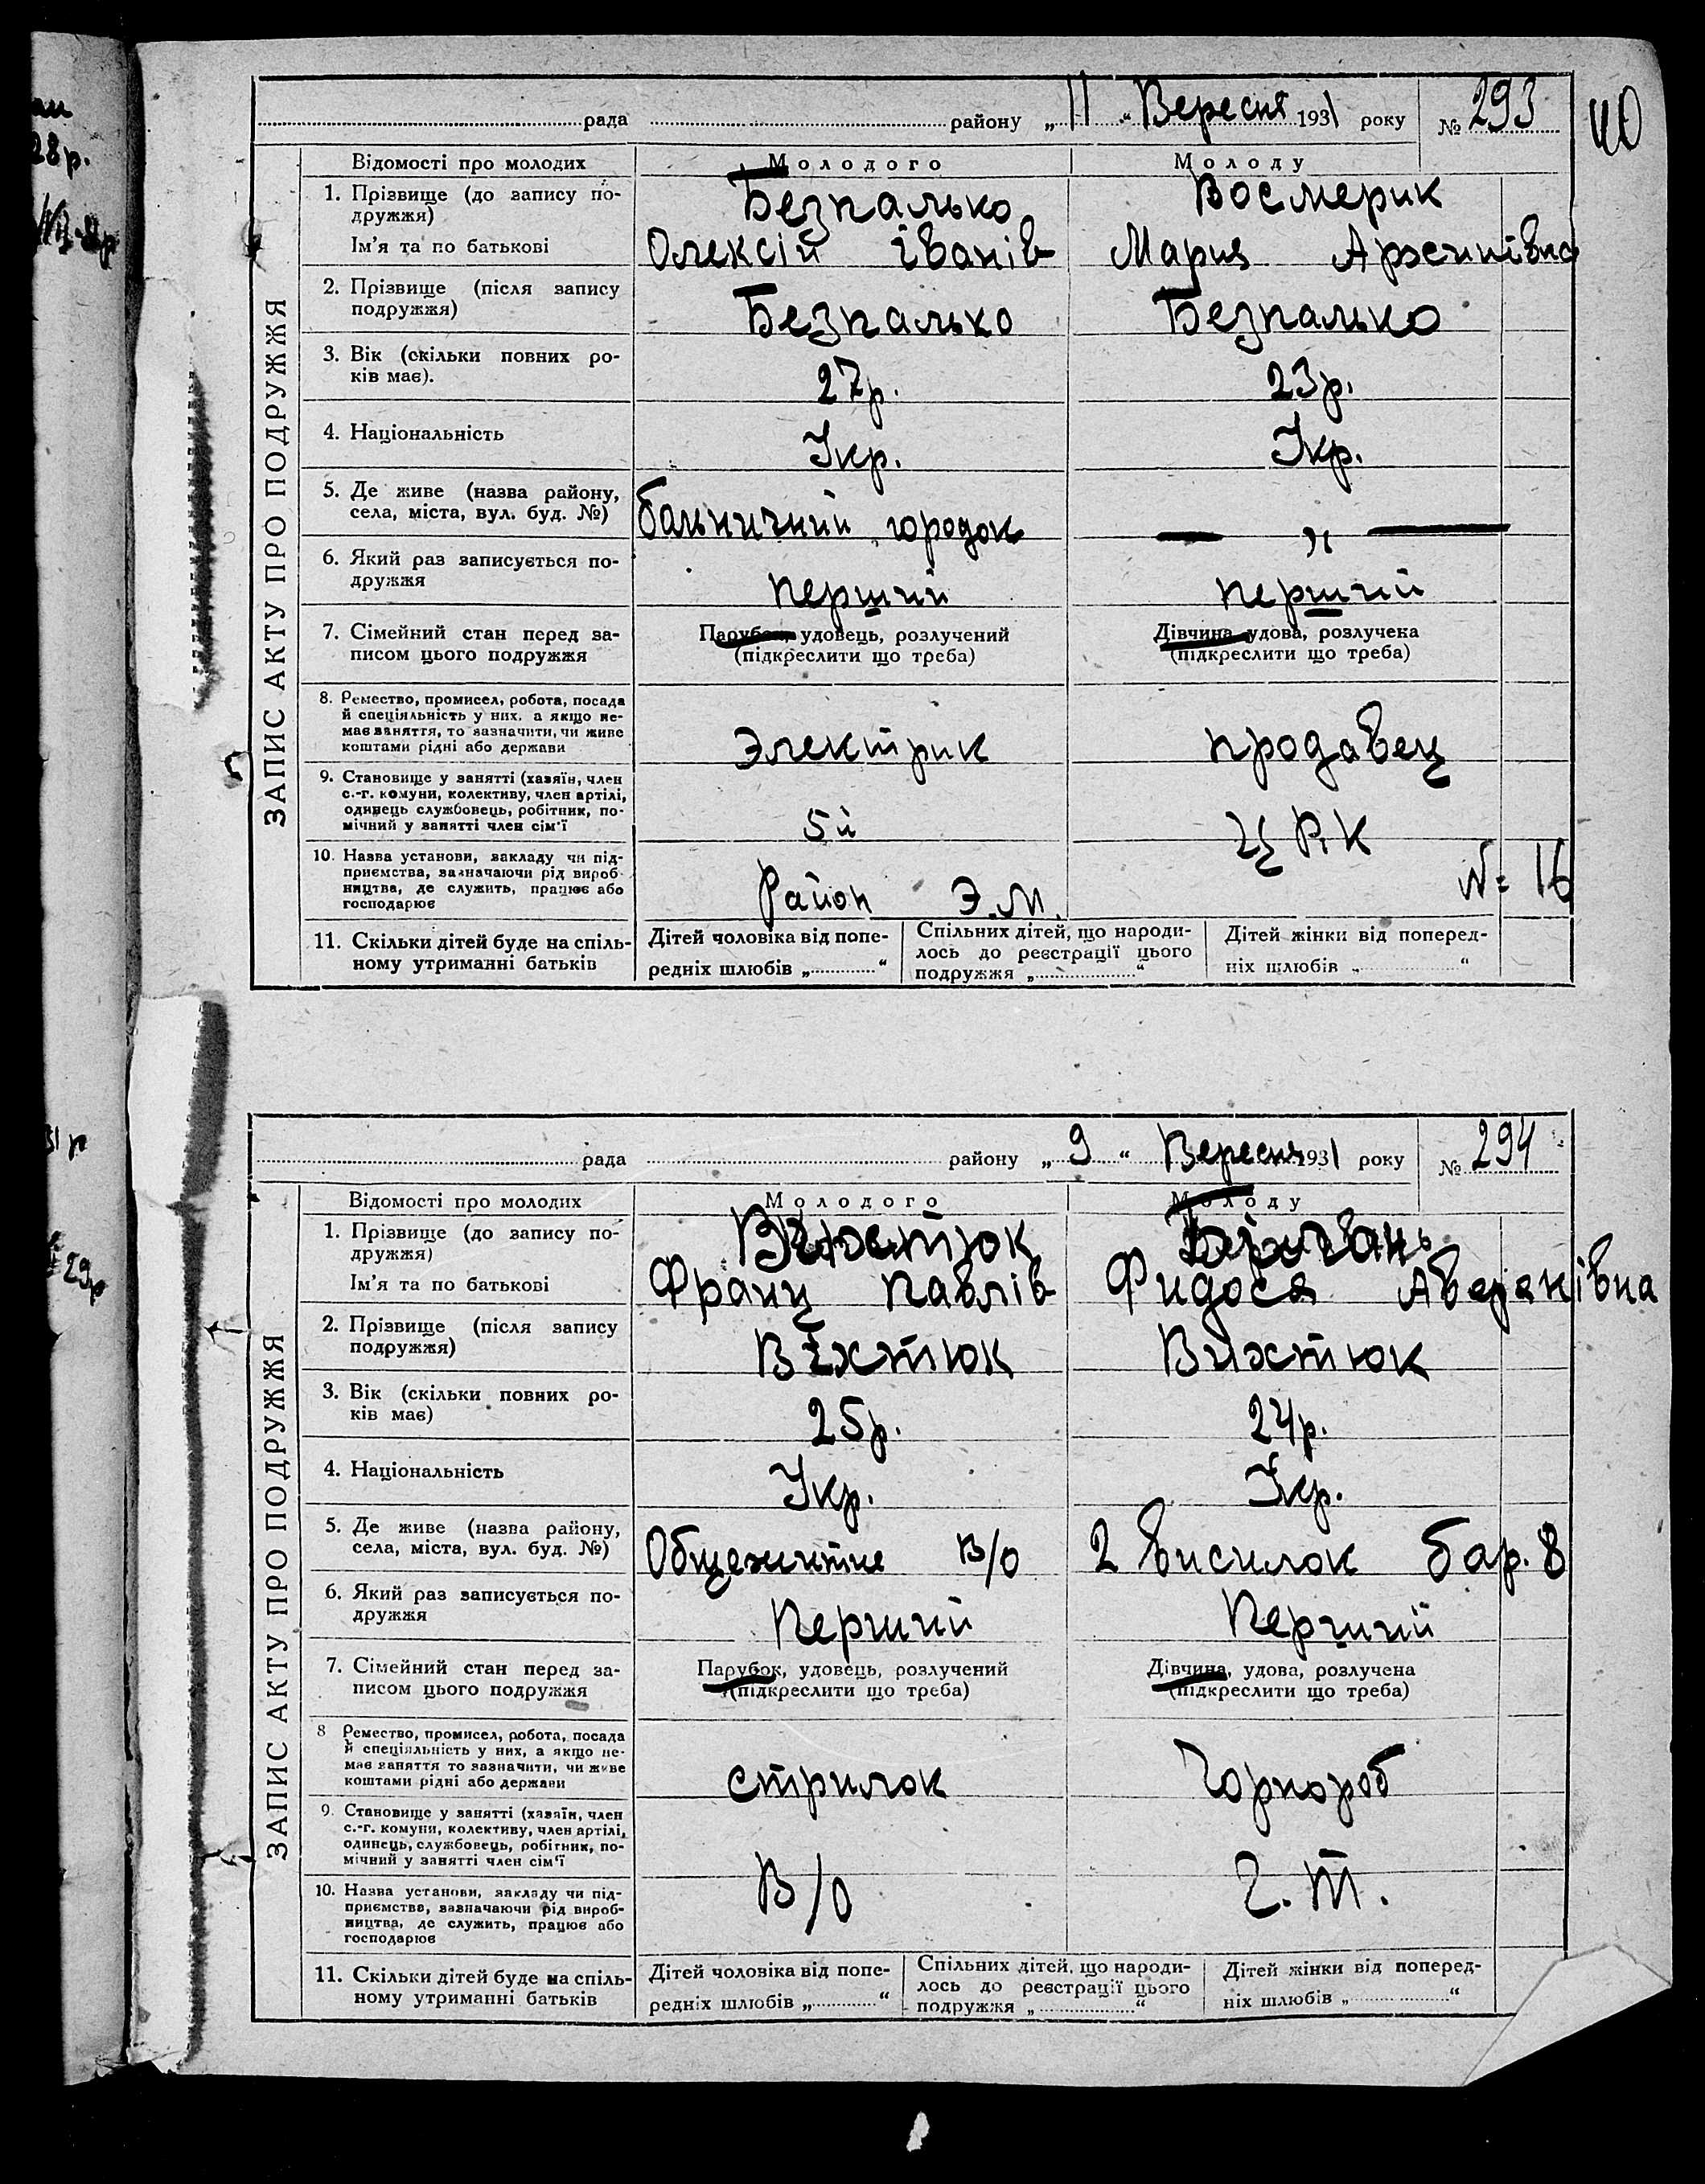 40
рада району „ 11 “ Вересня 1931 року № 293
ЗАПИС АКТУ ПРО ПОДРУЖЖЯ
Відомості про молодих Молодого Молоду
1. Прізвище (до запису по-
дружжя) Безпалько Восмерик
Ім'я та по батькові Олексій Іванів Мария
2. Прізвище (після запису
подружжя) Безпалько Безпалько
3. Вік (скільки повних ро-
ків має). 27р. 23р.
4. Національність Укр. Укр.
5. Де живе (назва району,
села, міста, вул. буд. №) бальничний городок — „ —
6. Який раз записується по-
дружжя перший перший
7. Сімейний стан перед за- Парубок, удовець, розлучений Дівчина, удова, розлучека
писом цього подружжя (підкреслити що треба) (підкреслити що треба)
8. Ремество, промисел, робота, посада
й спеціяльність у них, а якщо не-
має заняття, то зазначити, чи живе
коштами рідні або держави Электрик продавец
9. Становище у занятті (хазяїн, член
с.-г. комуни, колективу, член артілі,
одинець службовець, робітник, по-
мічний у занятті член сім'ї 5й Ц Р.К
10. Назва установи, закладу чи під-
приємства, зазначаючи рід вироб-
ництва, де служить, працює або
господарює Район Э.М. № 16
11. Скільки дітей буде на спіль- Дітей чоловіка від попе- Спільних дітей, що народи- Дітей жінки від поперед-
ному утриманні батьків редніх шлюбів „ “ лось до реєстрації цього ніх шлюбів „ “
подружжя „ “
рада району „ 9 “ Вересня 1931 року № 294
ЗАПИС АКТУ ПРО ПОДРУЖЖЯ
Відомості про молодих Молодого Молоду
1. Прізвище (до запису по-
дружжя)
Ім'я та по батькові Франц Павлів Фидося
2. Прізвище (після запису
подружжя) Віхтюк Вихтюк
3. Вік (скільки повних ро-
ків має) 25р. 24р.
4. Національність Укр. Укр.
5. Де живе (назва району,
села, міста, вул. буд. №) Общежитие В/о 2 висилок бар. 8
6. Який раз записується по-
дружжя Перший Перший
7. Сімейний стан перед за- Парубок, удовець, розлучений Дівчина, удова, розлучена
писом цього подружжя (підкреслити що треба) (підкреслити що треба)
8 Ремество, промисел, робота, посада
й спеціяльність у них, а якщо не-
має заняття то зазначити, чи живе
коштами рідні або держави стрилок Чорнороб
9. Становище у занятті (хазяїн, член
с.-г. комуни, колективу, член артілі,
одинець, службовець, робітник, по-
мічний у занятті член сім'ї
10. Назва установи, закладу чи під- В/о Г.Т.
приємства, зазначаючи рід вироб-
ництва, де служить, працює або
господарює
11. Скільки дітей буде на спіль- Дітей чоловіка від попе- Спільних дітей, що народи- Дітей жінки від поперед-
ному утриманні батьків редніх шлюбів „ “ лось до реєстрації цього ніх шлюбів „ “
подружжя „ “